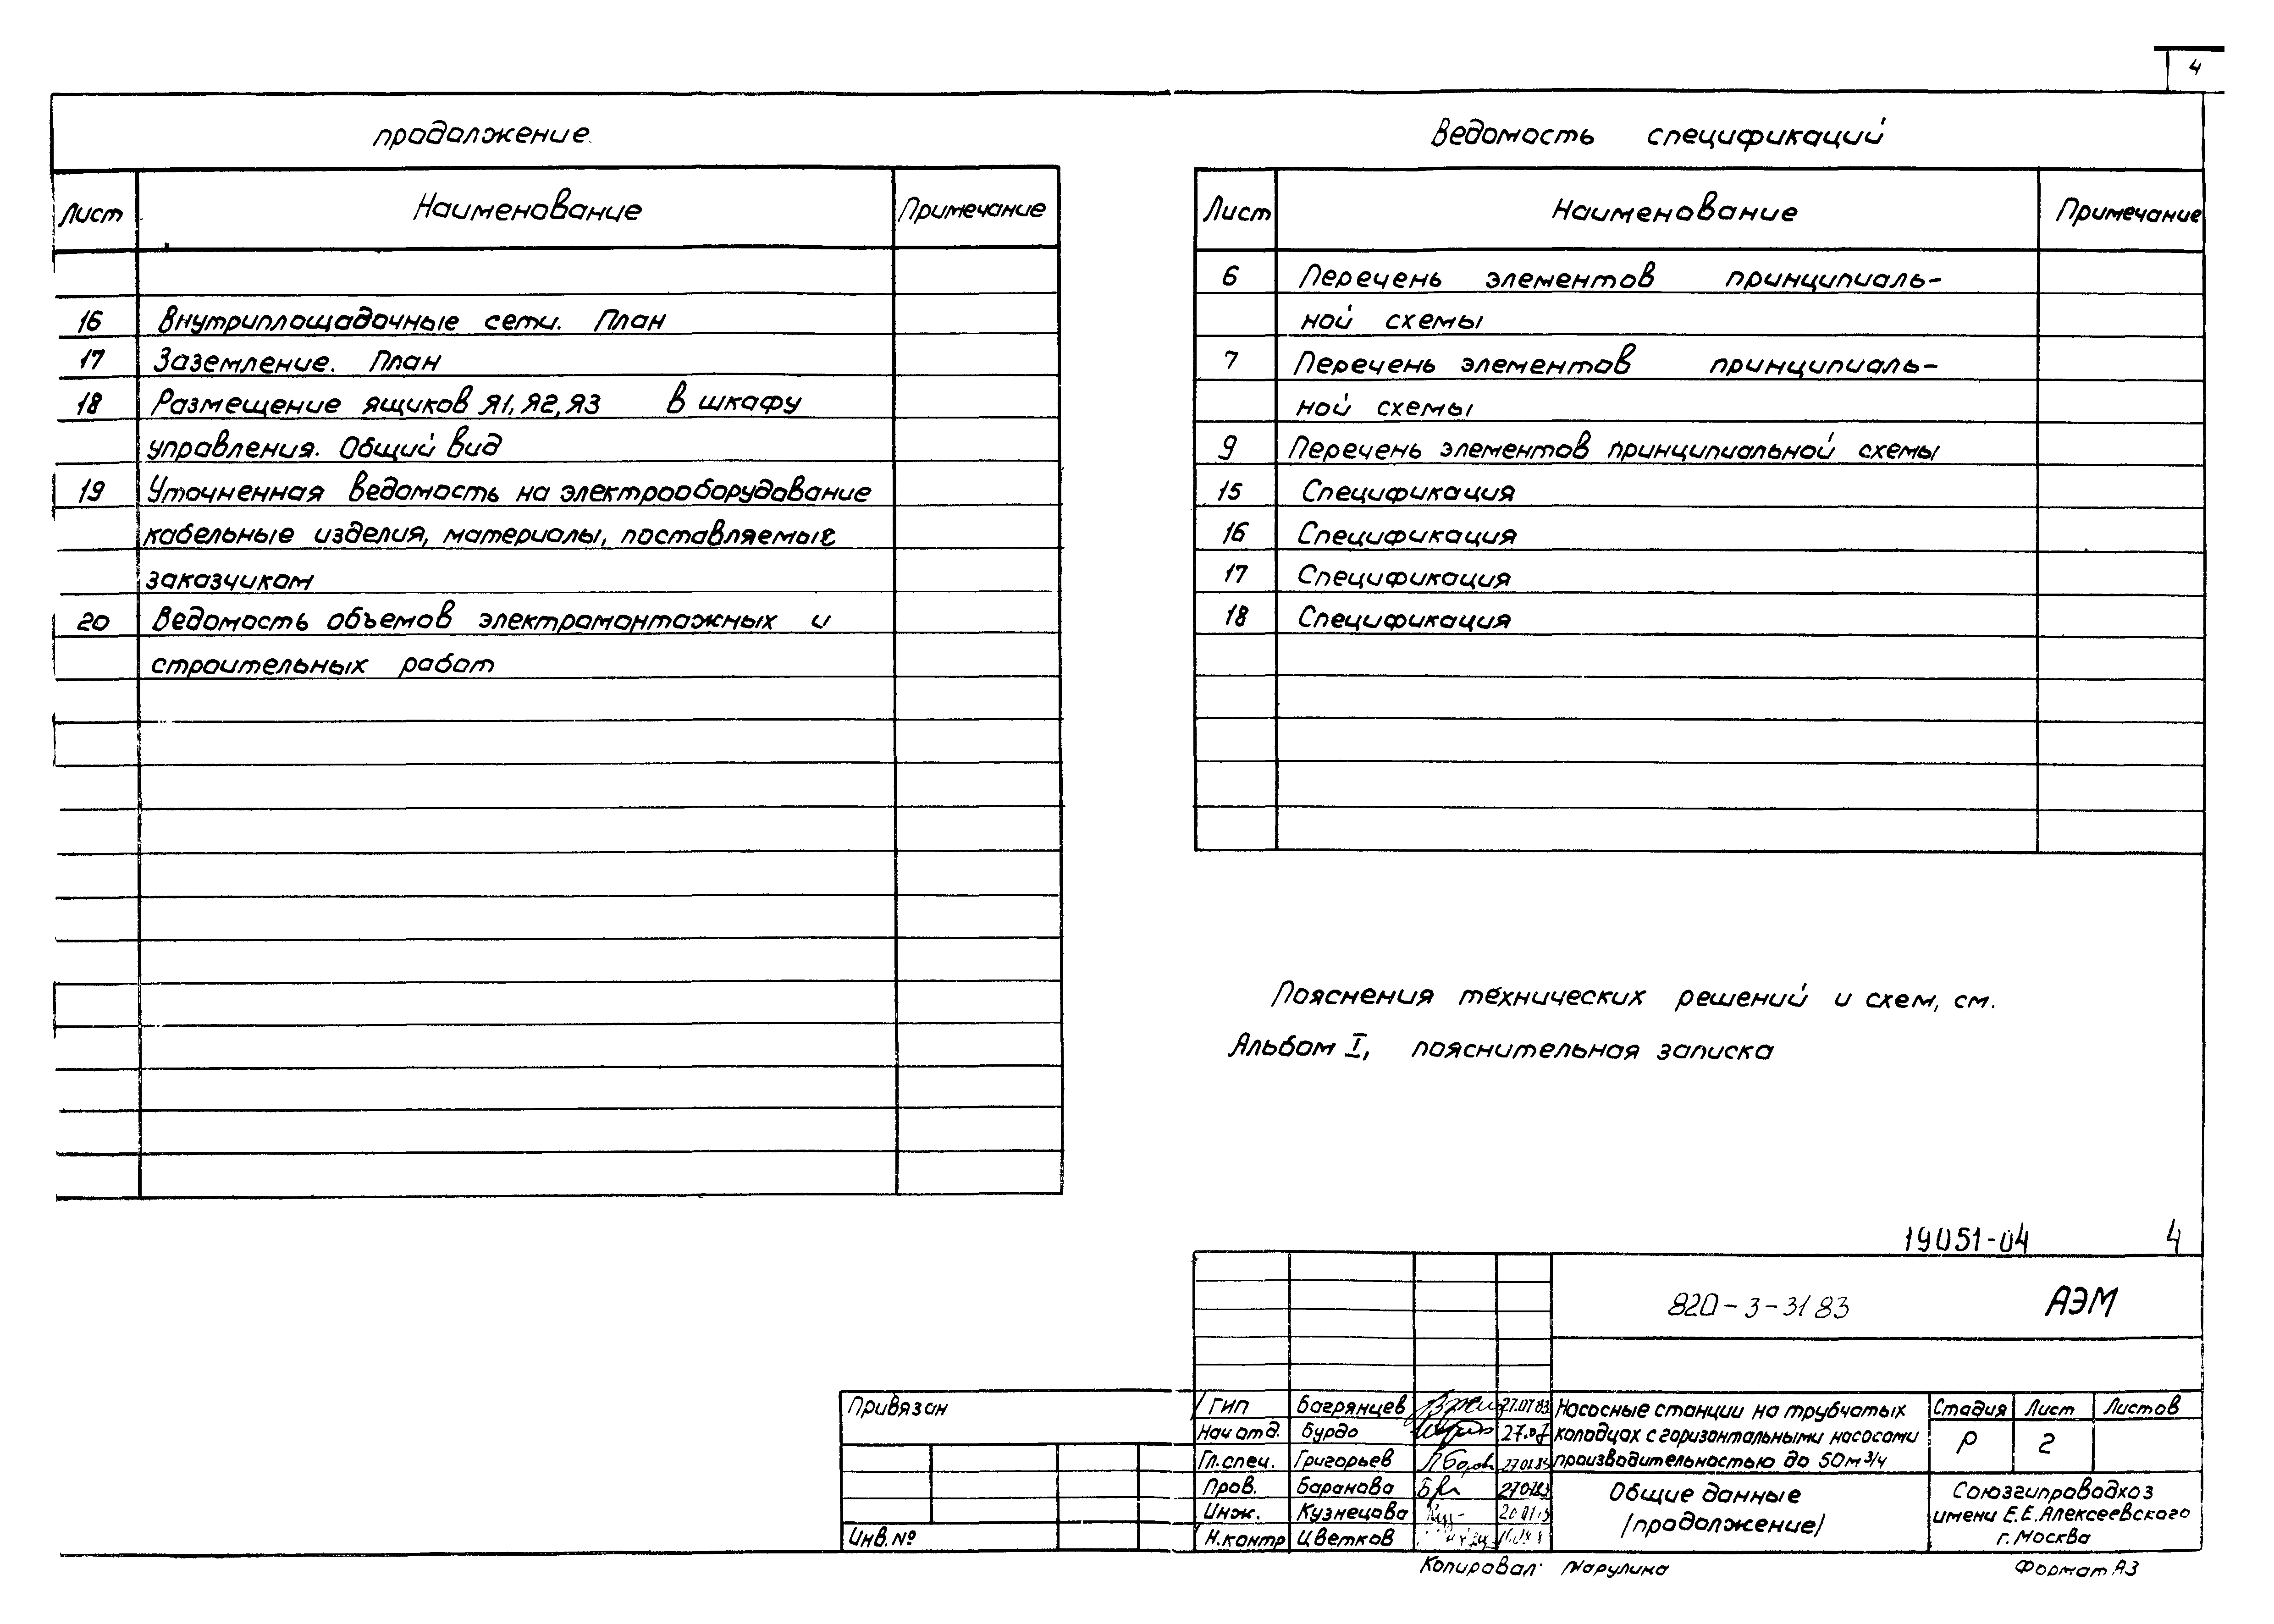 4
продолжение.
Лист Наименование Примечание
16 Внутриплощадочные сети. План
17 Заземление. План
18 Размещение ящиков Я1, Я2, Я3 в шкафу
управления. Общий вид
19 Уточненная ведомость на электрооборудование
кабельные изделия, материалы, поставляемые
заказчиком
20 Ведомость объемов электромонтажных и
строительных работ
Ведомость спецификаций
Лист Наименование Примечание
6 Перечень элементов принципиаль-
ной схемы
7 Перечень элементов принципиаль-
ной схемы
9 Перечень элементов принципиальной схемы
15 Спецификация
16 Спецификация
17 Спецификация
18 Спецификация
Пояснения технических решений и схем, см.
Альбом I, пояснительная записка
19051-04 4
820-3-31 83 АЭМ
Привязан
Инв. №
ГИП Багрянцев 27.07.83
Нач отд. Бурдо
Гл. спец. Григорьев
Пров. Баранова
Инж. Кузнецова
Н. контр Цветков
Насосные станции на трубчатых
колодцах с горизонтальными насосами
производительностью до 50 м³/ч
Стадия Лист Листов
Р 2
Общие данные
/продолжение/
Союзгипроводхоз
имени Е.Е. Алексеевского
г. Москва
Копировал: Жарулина
Формат А3